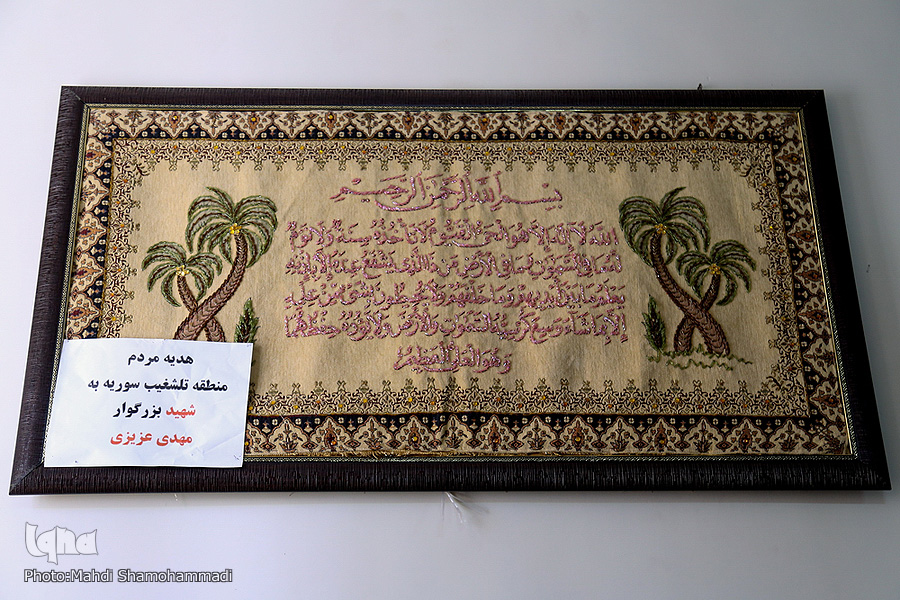 بسم الله الرحمن الرحيم
الله لا اله الا هو الحي القيوم لا تأخذه سنة ولا نوم
له ما في السموات وما في الارض من ذا الذي يشفع عنده الا باذنه
يعلم ما بين ايديهم وما خلفهم ولا يحيطون بشئ من علمه
الا بما شاء وسع كرسيه السموات والارض ولا يؤده حفظهما
وهو العلي العظيم
هدیه مردم
منطقه تلشغیب سوریه به
شهید بزرگوار
مهدی عزیزی
iqna
Photo:Mahdi Shamohammadi